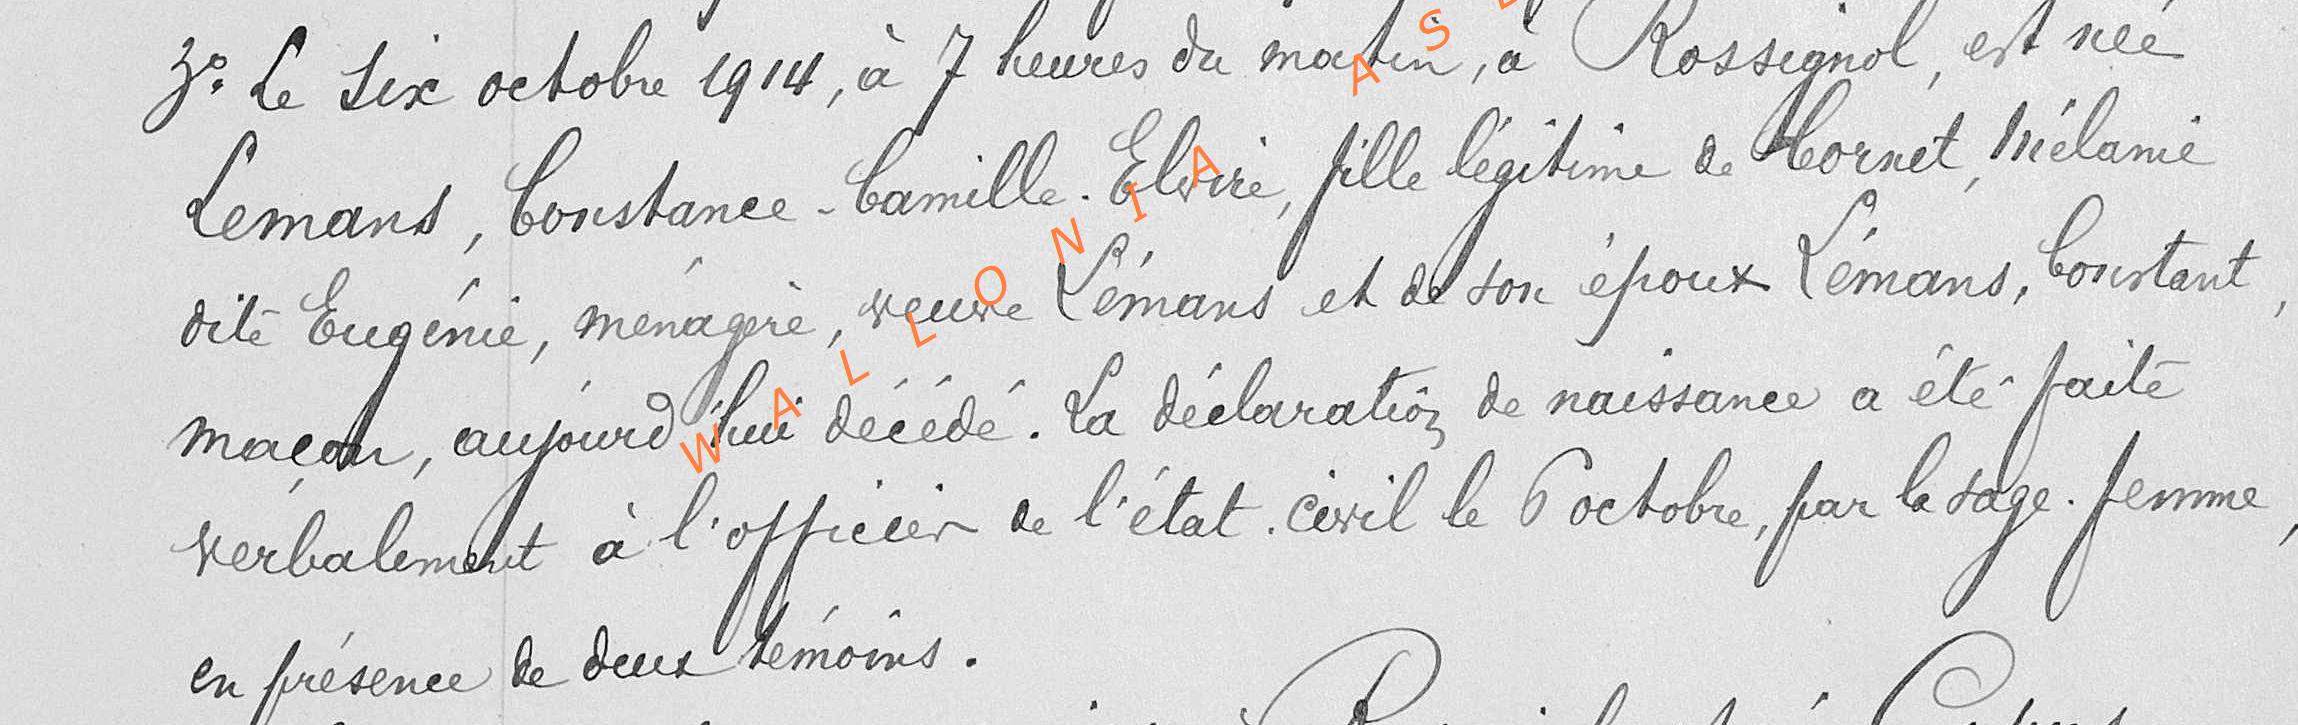 3º. Le six octobre 1914, à 7 heures du matin, à Rossignol, est née
Lemans, Constance-Camille-Elvire, fille légitime de Cornet, Mélanie
dite Eugénie, ménagère, veuve Lémans et de son époux Lémans, Constant,
maçon, aujourd'hui décédé. La déclaration de naissance a été faite
verbalement à l'officier de l'état-civil le 6 octobre, par la sage-femme,
en présence de deux témoins.
WALLONIA AS